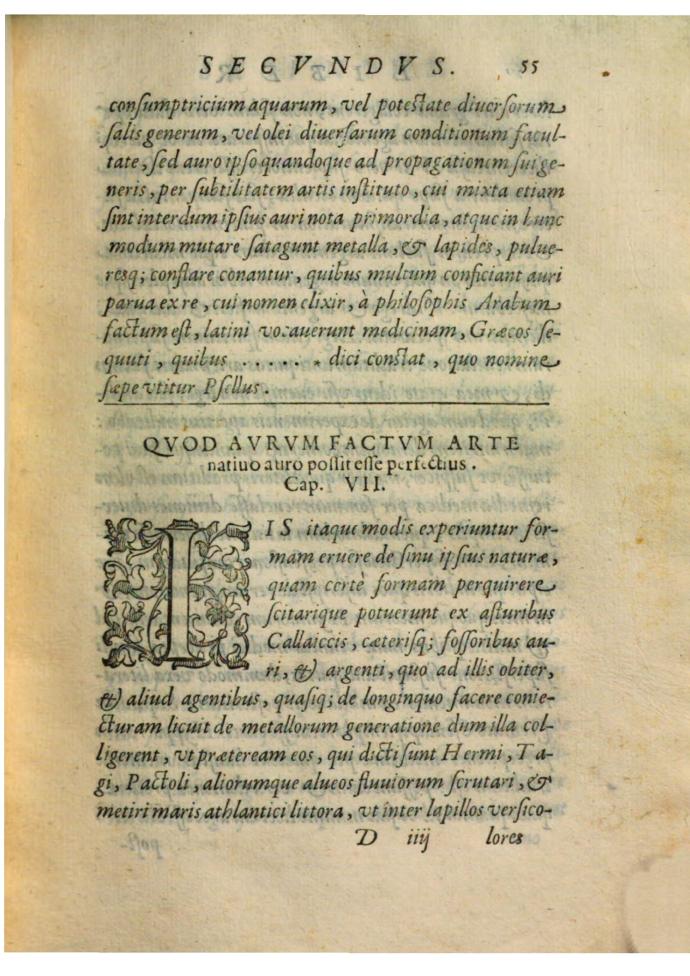 SECVNDVS. 55
consumptricium aquarum, vel potestate diuersorum
salis generum, vel olei diuersarum conditionum facul-
tate, sed auro ipso quandoque ad propagationem sui ge-
neris, per subtilitatem artis instituto, cui mixta etiam
sint interdum ipsius auri nota primordia, atque in hunc
modum mutare satagunt metalla, & lapides, pulue-
resq; conflare conantur, quibus multum conficiant auri
parua ex re, cui nomen elixir, à philosophis Arabum
factum est, latini vocauerunt medicinam, Græcos se-
quuti, quibus ..... * dici constat, quo nomine
sæpe vtitur Psellus.
QVOD AVRVM FACTVM ARTE
natiuo auro possit esse perfectius.
Cap. VII.
IIS itaque modis experiuntur for-
mam eruere de sinu ipsius naturæ,
quam certè formam perquirere
scitarique potuerunt ex asturibus
Callaiccis, cæterisq; fossoribus au-
ri, & argenti, quo ad illis obiter,
& aliud agentibus, quasiq; de longinquo facere conie-
cturam licuit de metallorum generatione dum illa col-
ligerent, vt præteream eos, qui dicti sunt Hermi, Ta-
gi, Pactoli, aliorumque alueos fluuiorum scrutari, &
metiri maris athlantici littora, vt inter lapillos versico-
D iiij lores